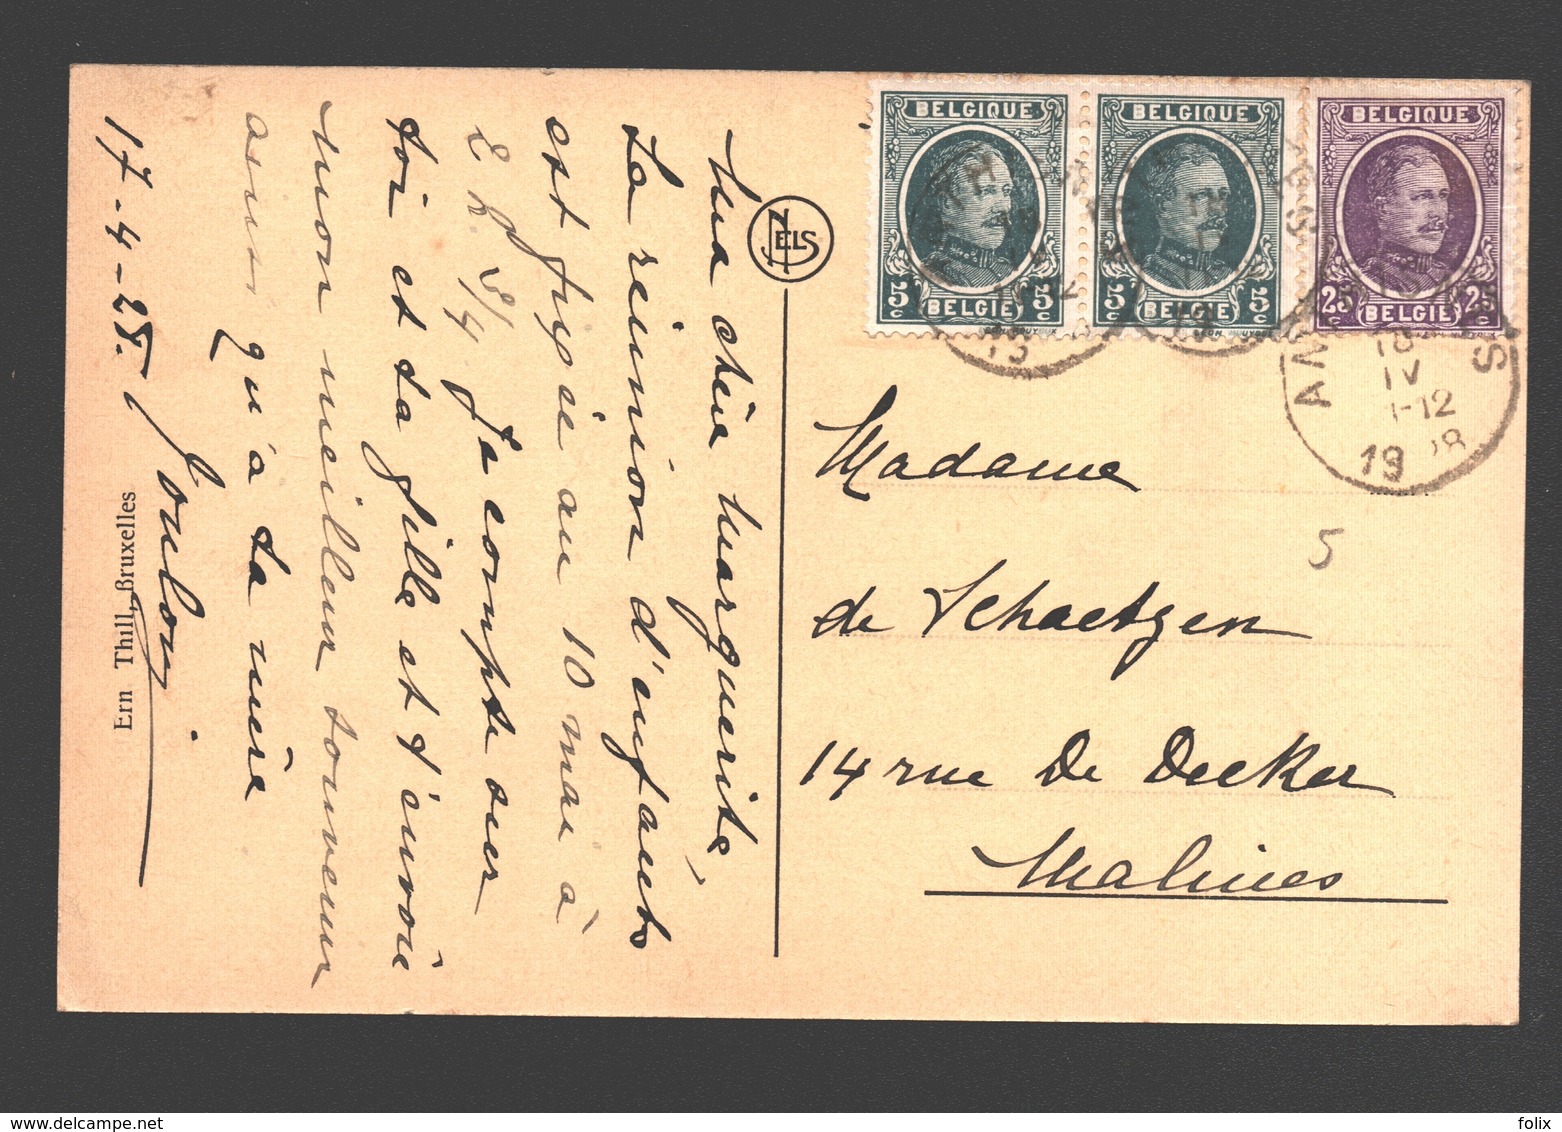 Ma chère Marguerite,
La réunion d'enfants
est fixée au 10 mai à
2 h 3/4. Je compte sur
toi et ta fille et t'envoie
mon meilleur souvenir
ainsi qu'à ta mère
17-4-28.
Ern Thill, Bruxelles
NELS
BELGIQUE
5c 5c
BELGIE
BELGIQUE
5c 5c
BELGIE
BELGIQUE
25c 25c
BELGIE
18
IV
-12
19 28
Madame
de Schaetzen
14 rue De Decker
Malines
5
folix